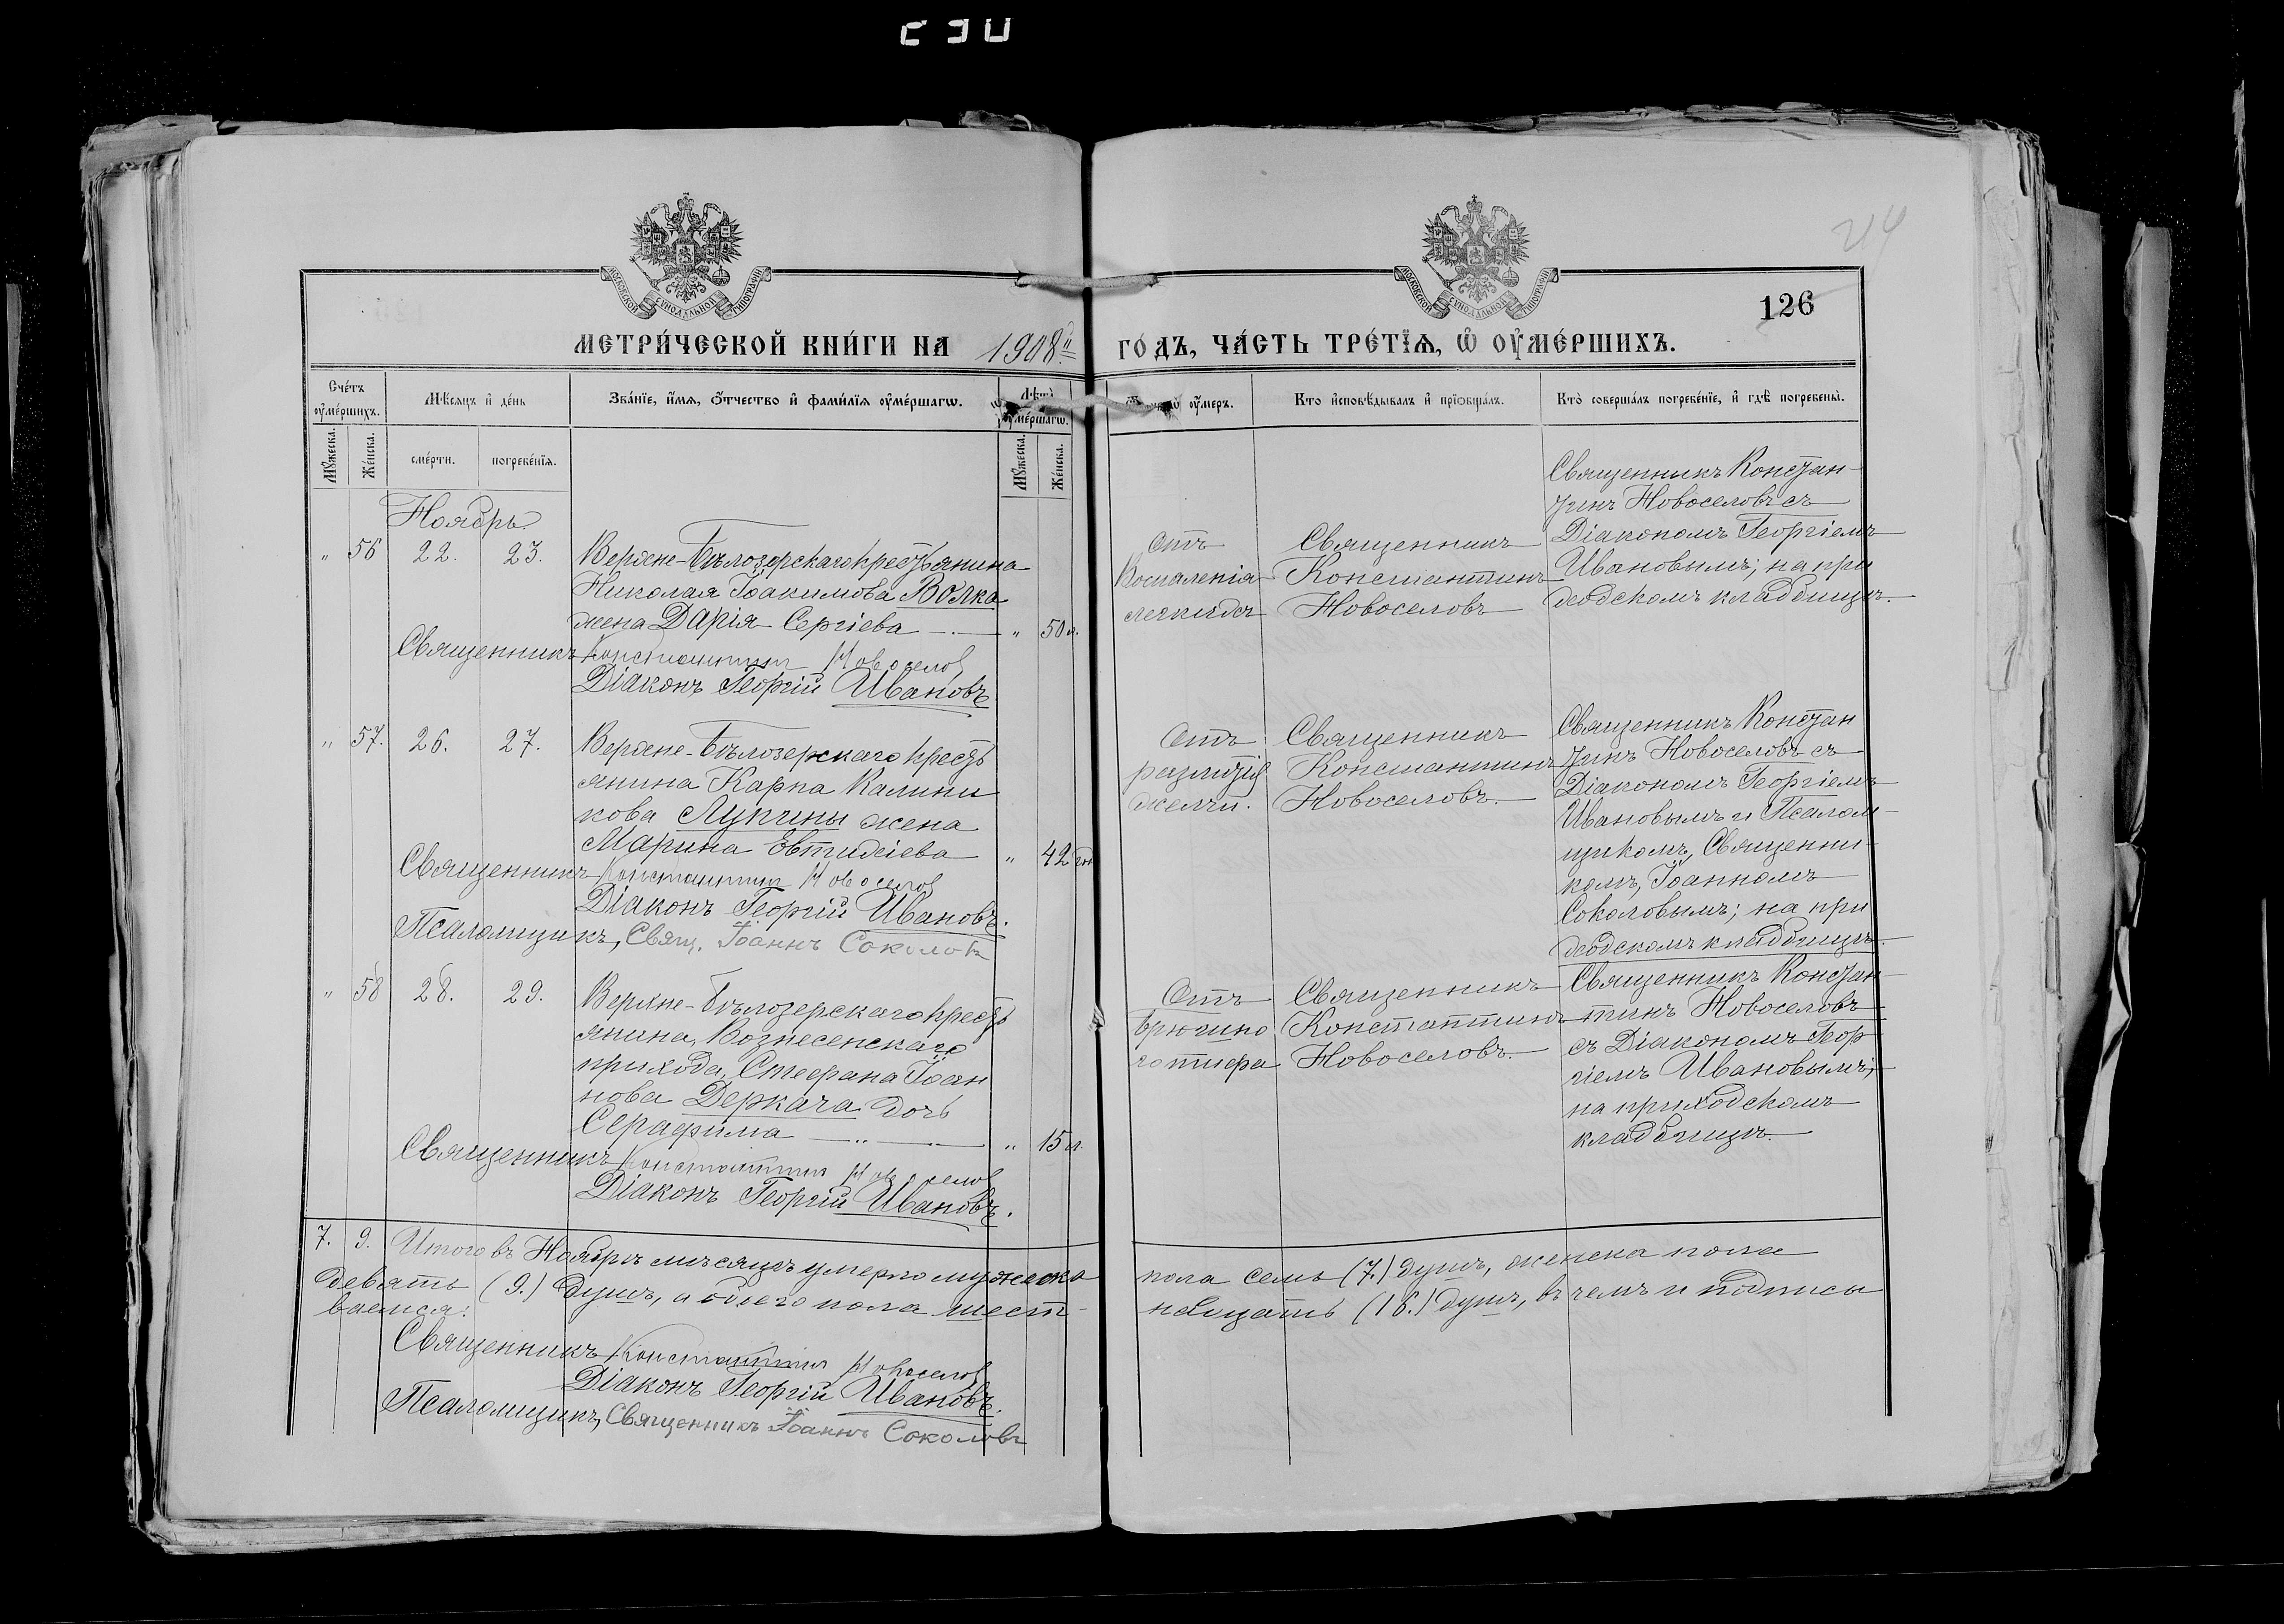 214
126
МОСКОВСКОЙ СѴНОДАЛЬНОЙ ТИПОГРАФІИ
МОСКОВСКОЙ СѴНОДАЛЬНОЙ ТИПОГРАФІИ
МЕТРИ́ЧЕСКОЙ КНИ́ГИ НА 1908й
ГО́ДЪ, ЧА́СТЬ ТРЕ́ТЇѦ, Ѡ҆ ОУ҆МЕ́РШИХЪ.
Сче́тъ оу҆ме́ршихъ.
Мѣсяцъ и҆ де́нь
Зва́нїе, и҆́мѧ, ѻ҆́тчество и҆ фами́лїѧ оу҆ме́ршагѡ.
Лѣта̀ оу҆ме́ршагѡ.
Мꙋ́жеска.
Же́нска.
сме́рти.
погребе́нїѧ.
Мꙋ́жеска.
Же́нска.
оу҆́меръ.
Кто̀ и҆сповѣ́дывалъ и҆ прїѡбща́лъ.
Кто̀ соверша́лъ погребе́нїе, и҆ гдѣ̀ погребены̀.
Ноябрь
" 56 22. 23. Верхне-Бѣлозерскаго крестьянина
Николая Іоакимова Волка
жена Дарія Сергіева " 50 л.
Священникъ Константин Новоселов
Діаконъ Георгій Ивановъ.
Отъ
воспаленія
легкихъ
Священникъ
Константинъ
Новоселовъ
Священникъ Констан-
тинъ Новоселовъ съ
Діакономъ Георгіемъ
Ивановымъ; на при
ходскомъ кладбищѣ.
" 57. 26. 27. Верхне-Бѣлозерскаго кресть
янина Карпа Калини
кова Лупины жена
Марина Евтихіева " 42 год
Священникъ Константин Новоселов
Діаконъ Георгій Ивановъ.
Псаломщикъ, Свящ. Іоаннъ Соколовъ
Отъ
разлитія
желчи.
Священникъ
Константинъ
Новоселовъ.
Священникъ Констан
тинъ Новоселовъ съ
Діакономъ Георгіемъ
Ивановымъ и Псалом-
щикомъ, Священни-
комъ, Іоанномъ
Соколовымъ; на при
ходскомъ кладбищѣ.
" 58 28. 29. Верхне-Бѣлозерскаго кресть
янина, Вознесенскаго
прихода, Стефана Іоан
нова Деркача дочь
Серафима " 15 л.
Священникъ Константин Новоселов
Діаконъ Георгій Ивановъ.
Отъ
брюшно
го тифа
Священникъ
Константинъ
Новоселовъ.
Священникъ Констан-
тинъ Новоселовъ
съ Діакономъ Геор
гіемъ Ивановымъ;
на приходскомъ
кладбищѣ.
7. 9. Итого въ Ноябрѣ мѣсяцѣ умерло мужеска
пола семь (7.) душъ, женска пола
девять (9.) душъ, а обоего пола шест-
надцать (16.) душъ, въ чемъ и подписы
ваемся:
Священникъ Константин Новоселов
Діаконъ Георгій Ивановъ.
Псаломщикъ, Священникъ Іоаннъ Соколовъ